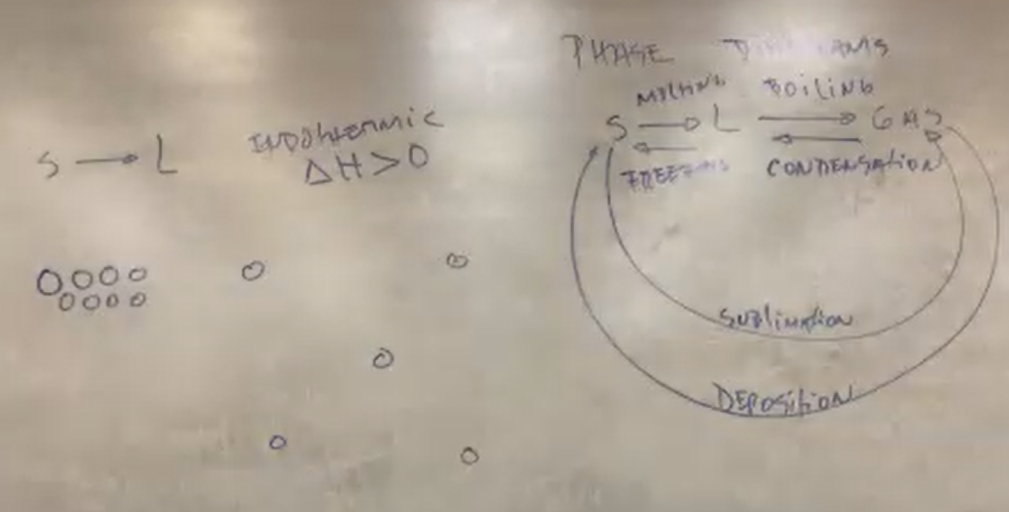 S → L
ENDOthermic
ΔH > O
PHASE
MElting BOiliNG
S → L → GAS
FREEZING CONDENSAtiON
SUBlimAtiON
DEPOSitiON